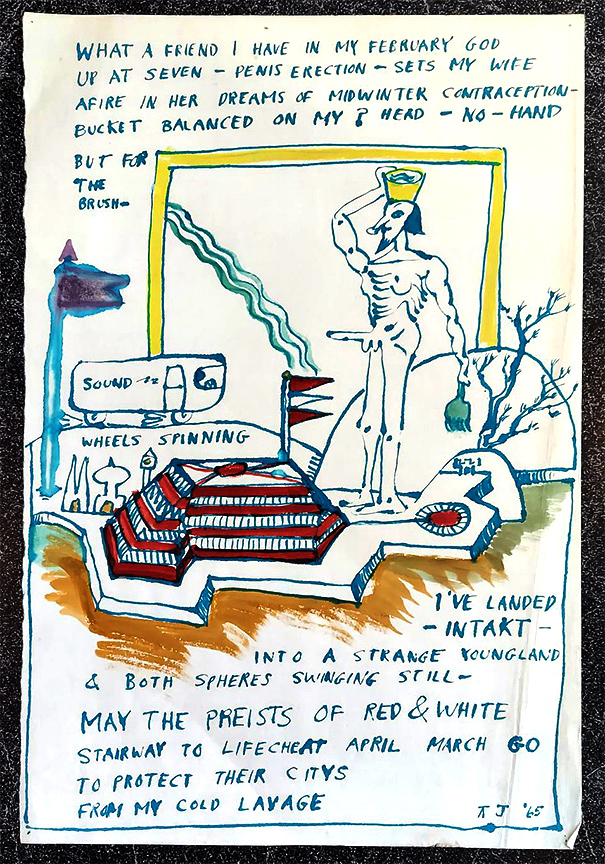 WHAT A FRIEND I HAVE IN MY FEBRUARY GOD
UP AT SEVEN - PENIS ERECTION - SETS MY WIFE
AFIRE IN HER DREAMS OF MIDWINTER CONTRACEPTION-
BUCKET BALANCED ON MY HEAD - NO - HAND
BUT FOR
THE
BRUSH-
SOUND
WHEELS SPINNING
I'VE LANDED
- INTAKT -
INTO A STRANGE YOUNGLAND
& BOTH SPHERES SWINGING STILL-
MAY THE PREISTS OF RED & WHITE
STAIRWAY TO LIFECHEAT APRIL MARCH GO
TO PROTECT THEIR CITYS
FROM MY COLD LAVAGE
J '65